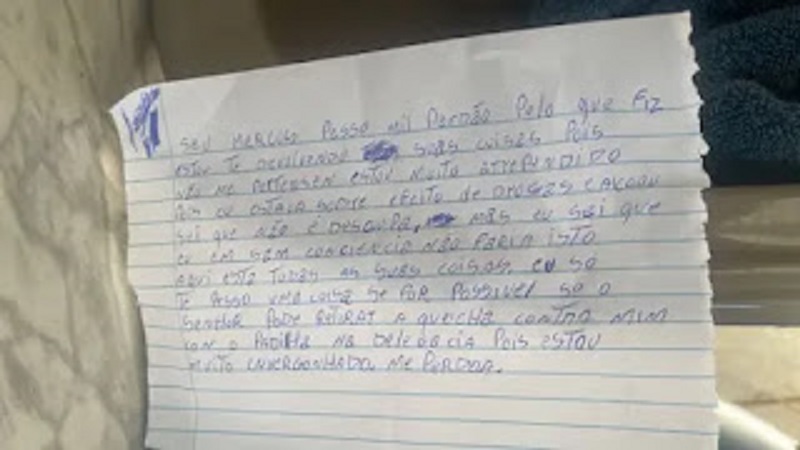 seu Marcos Pesso mil Perdão Pelo que Fiz
estou Te devolvendo suas coisas Pois
não me Pertensen estou muito arrependido
Pois eu estava sobre efeito de drogas e álcool
sei que não é desculpa, mas eu sei que
eu em sam conciencia não faria isto
aqui esta Todas as suas coisas. eu so
Te Pesso uma coisa se for Possivel so o
senhor Pode retirar a queicha contra mim
com o Padilha na delegacia Pois estou
muito envergonhada me Perdoa.